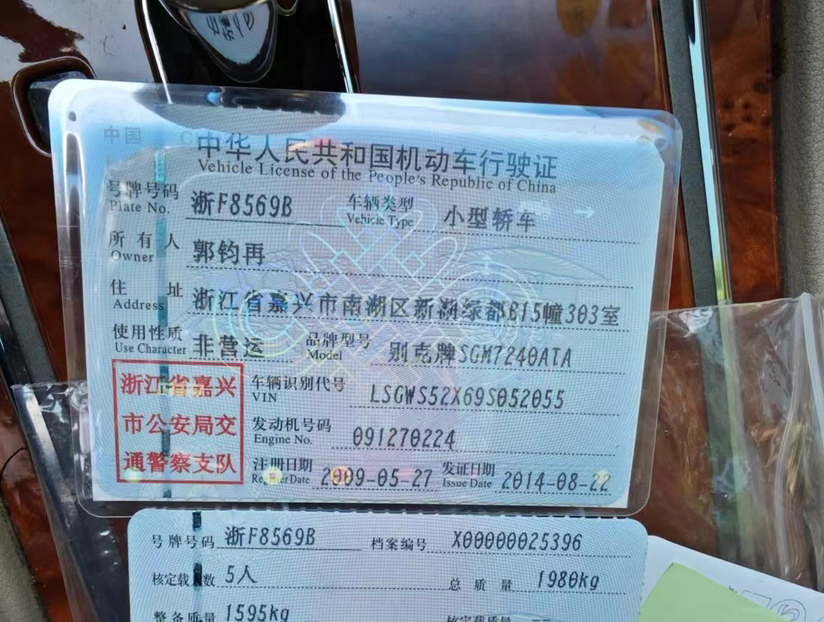 中国 C
中华人民共和国机动车行驶证
Vehicle License of the People's Republic of China
号牌号码 浙F8569B 车辆类型 小型轿车
Plate No. Vehicle Type
所有人 郭钧再
Owner
住址 浙江省嘉兴市南湖区新湖绿都B15幢303室
Address
使用性质 非营运 品牌型号 别克牌SGM7240ATA
Use Character Model
浙江省嘉兴
市公安局交
通警察支队
车辆识别代号 LSGWS52X69S052055
VIN
发动机号码 091270224
Engine No.
注册日期 2009-05-27 发证日期 2014-08-22
Register Date Issue Date
号牌号码 浙F8569B 档案编号 X00000025396
核定载人数 5人 总质量 1980kg
整备质量 1595kg 核定载质量